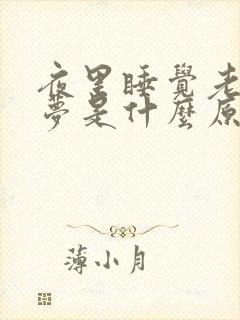 夜里睡覺老
夢是什麼原
薄小月